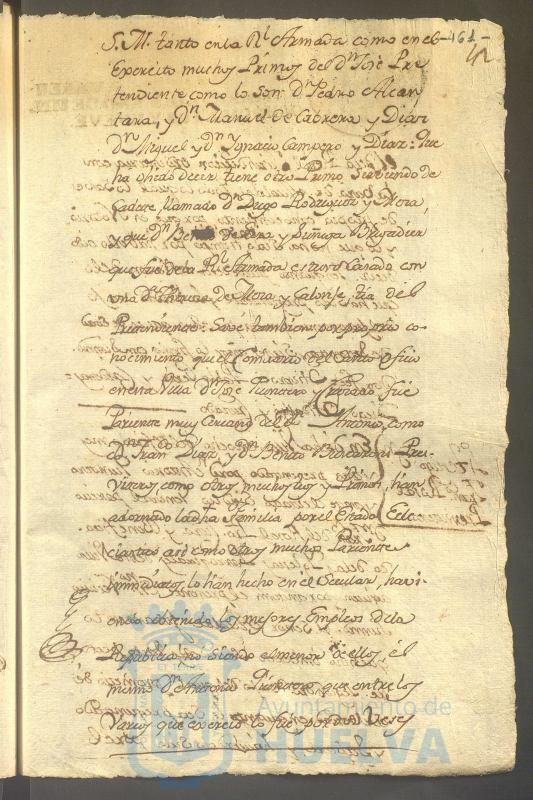 -461-
S. M. tanto en la Rl. Armada como en el
Exercito muchos Primos del Dn. Jose Pre
tendiente como lo son Dn. Pedro Alcan
tara, y Dn. Manuel de Cabrera y Diaz:
Dn. Miguel y Dn. Ygnacio Campero y Diaz: que
ha oido decir tiene otro Primo sirviendo de
Cadete llamado Dn. Diego Rodriguez y Mora,
y que Dn. y Zuñiga Brigadier
que fue de la Rl. Armada estuvo casado con
una Da. de Mora y Calonje, tia del
Pretendiente: Save tambien por proprio co-
nocimiento que el Comisario del Santo Oficio
en esta Villa Dn. Jose Quintero y fue
Pariente muy cercano del Dn. Antonio como
Dn. Juan Diaz, y Dn. Benito Pres-
viteros como otros muchos tios y Primos han
adornado la dha. Familia por el Estado Ecle
ciastico asi como otros muchos Parientes
lo han hecho en el Secular, havi-
endo obtenido los mejores Empleos de la
Republica no siendo el menor de ellos el
mismo Dn. Antonio Quintero que entre los
Varios que exercio lo fue por dos Veces
Ayuntamiento de
HUELVA